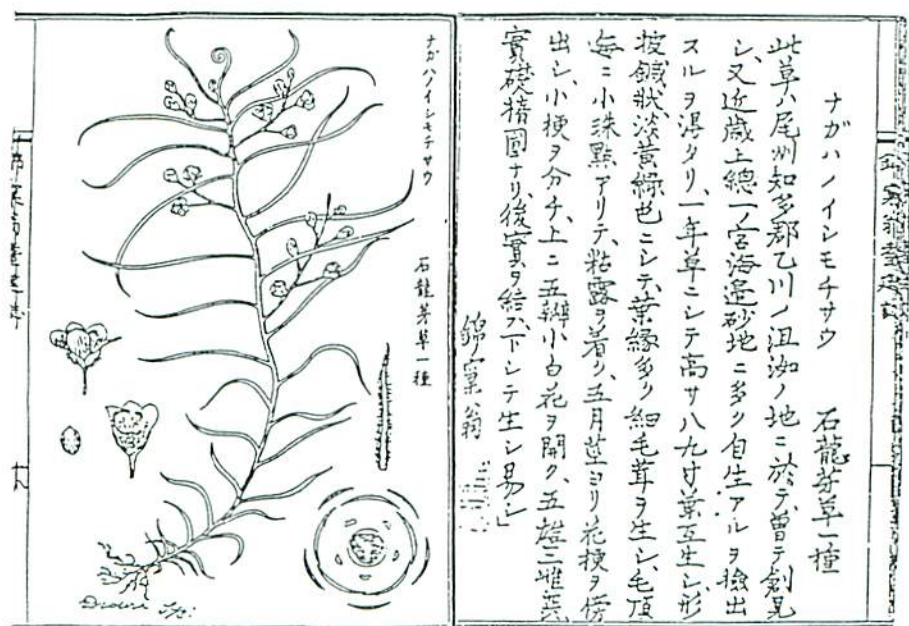 ナガハノイシモチサウ　石龍芽草一種
此草ハ尾州知多郡乙川ノ沮洳ノ地ニ於テ曽テ創見
シ、又近歳上總一ノ宮海邉砂地ニ多ク自生アルヲ撿出
スルヲ淂タリ、一年草ニシテ高サ八九寸葉互生シ、形
披鍼狀、淡黄綠色ニシテ、葉緣多ク細毛茸ヲ生シ、毛頂
每ニ小珠點アリテ、粘露ヲ着ク、五月莖ヨリ花梗ヲ傍
出シ、小梗ヲ分チ、上ニ五瓣小白花ヲ開ク、五雄三雌
實礎橢圓ナリ、後實ヲ結フ、下シテ生シ易シ」
錦窠翁
ナガハノイシモチサウ
石龍芽草一種